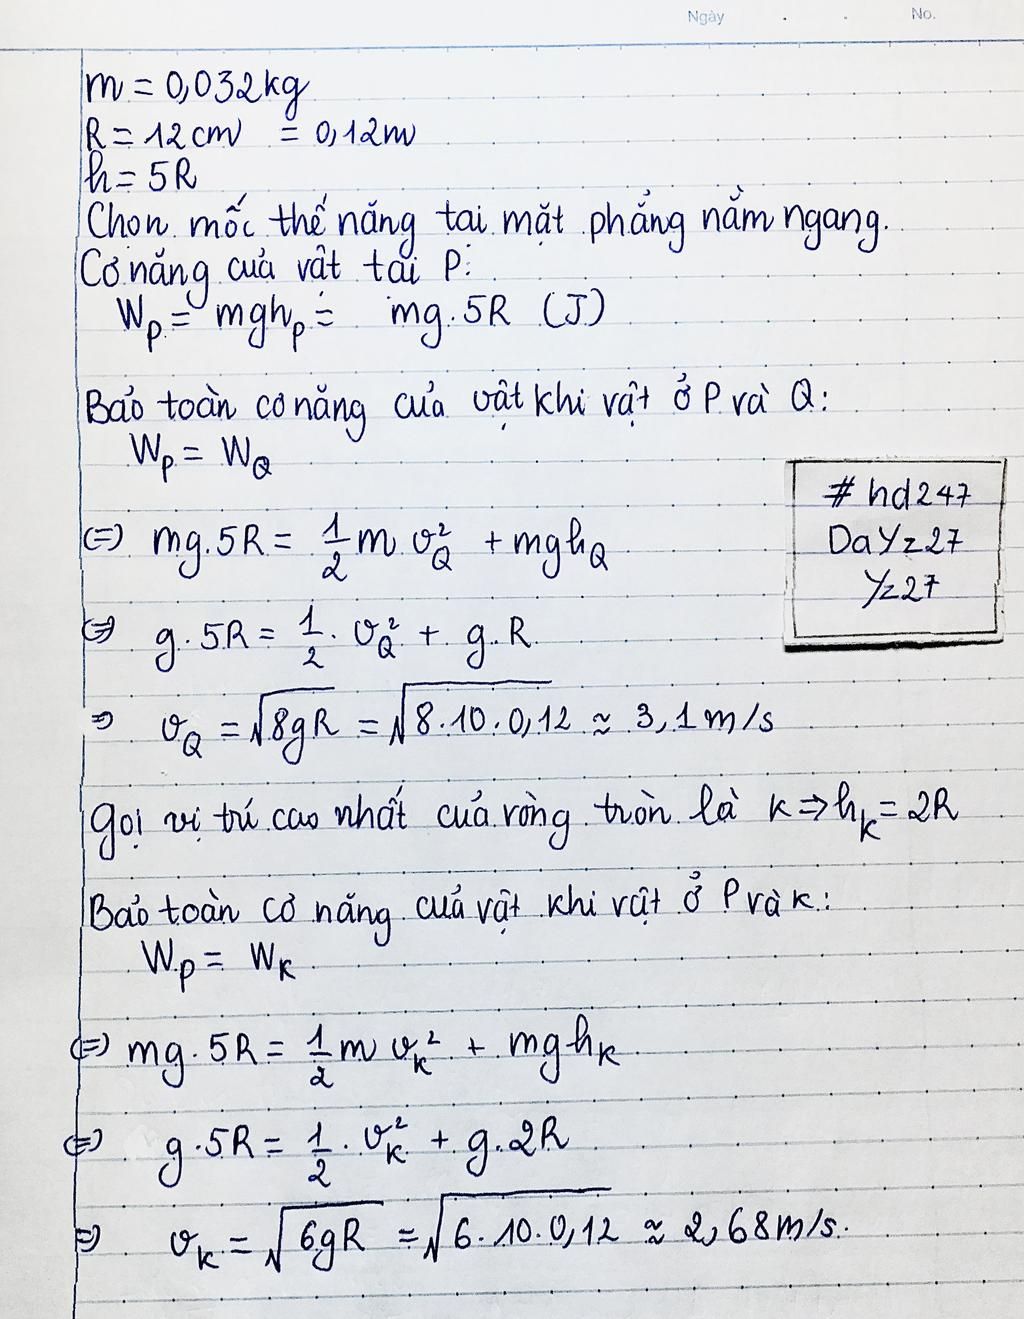 Ngày . . No.
m = 0,032kg
R = 12 cm = 0,12m
h = 5R
Chọn mốc thế năng tại mặt phẳng nằm ngang.
Cơ năng của vật tại P:
W_P = mgh_P = mg.5R (J)
Bảo toàn cơ năng của vật khi vật ở P và Q:
W_P = W_Q
#hd247
DaYz27
Yz27
(=) mg.5R = 1/2 m v_Q² + mgh_Q
(=) g.5R = 1/2 . v_Q² + g.R
=) v_Q = √8gR = √8.10.0,12 ≈ 3,1m/s
Gọi vị trí cao nhất của vòng tròn là K ⇒ h_K = 2R
Bảo toàn cơ năng của vật khi vật ở P và K:
W_P = W_K
(=) mg.5R = 1/2 m v_K² + mgh_K
(=) g.5R = 1/2 . v_K² + g.2R
=) v_K = √6gR = √6.10.0,12 ≈ 2,68m/s.